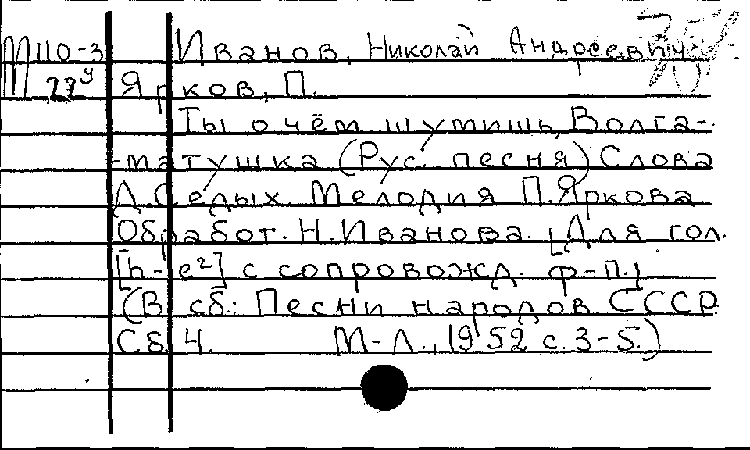 М 110-3 Иванов, Николай Андреевич.
279 Ярков, П.
Ты о чём шумишь, Волга-
-матушка (Рус. песня) Слова
А. Седых. Мелодия П. Яркова
Обработ. Н. Иванова. [Для гол.
[h - e²] с сопровожд. ф-п.]
(В сб.: Песни народов СССР
Сб. 4. М-Л., 1952 с. 3-5.)